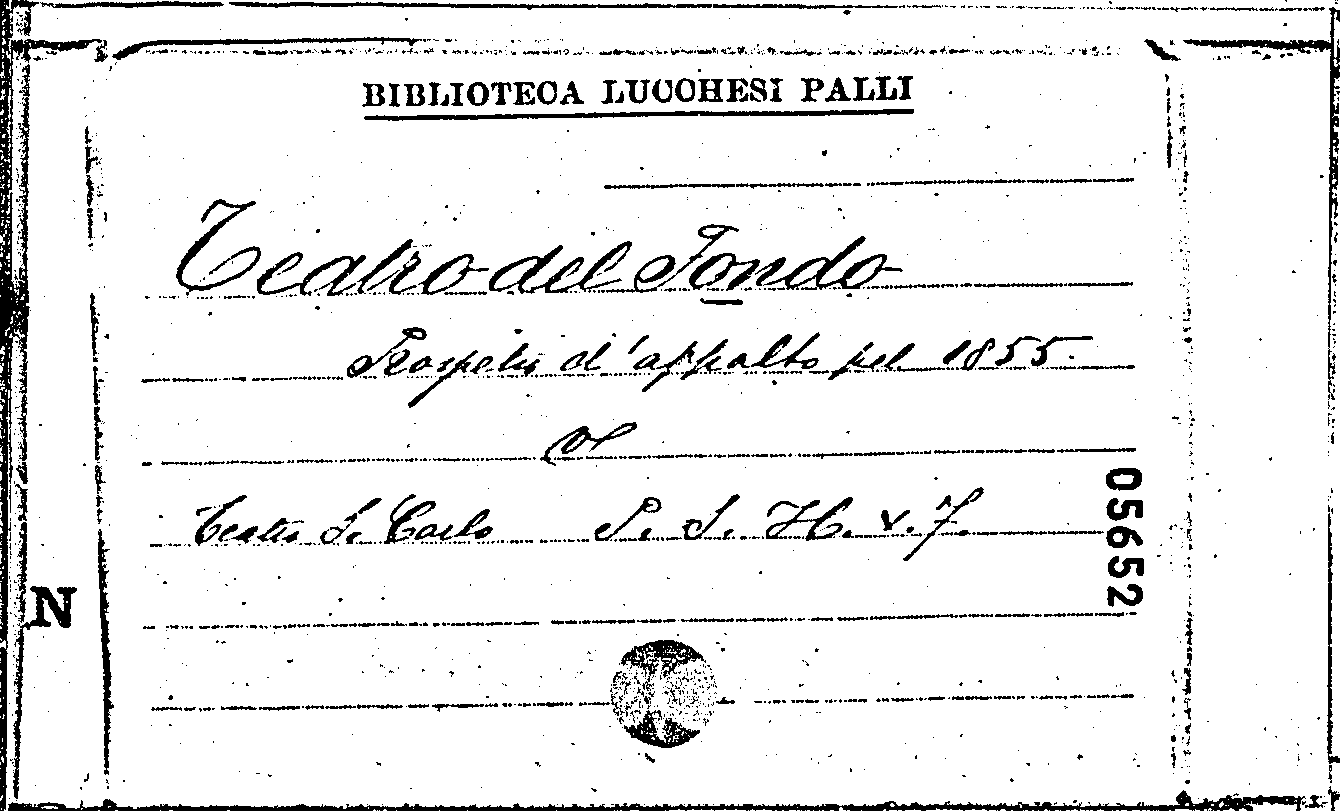 BIBLIOTECA LUCCHESI PALLI
Teatro del Fondo
Prospetto d'appalto pel 1855.
Teatro S. Carlo P. S. H. v. 7.
05652
N